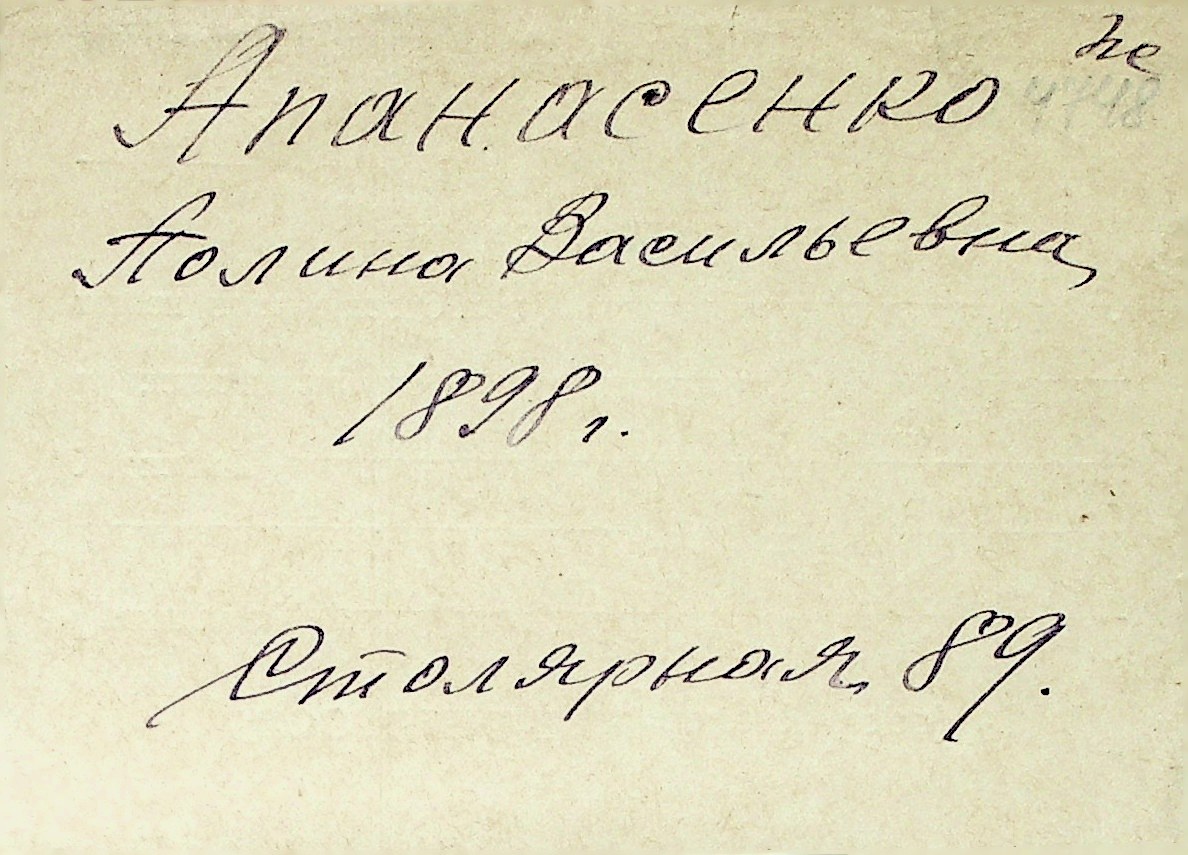 Апанасенко
Полина Васильевна,
1898 г.
Столярная, 89.